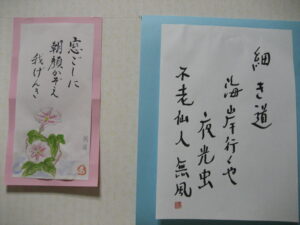 窓ごしに
朝顔かぞえ
我げんき
細き道
海岸行くや
夜光虫
不老仙人 無風